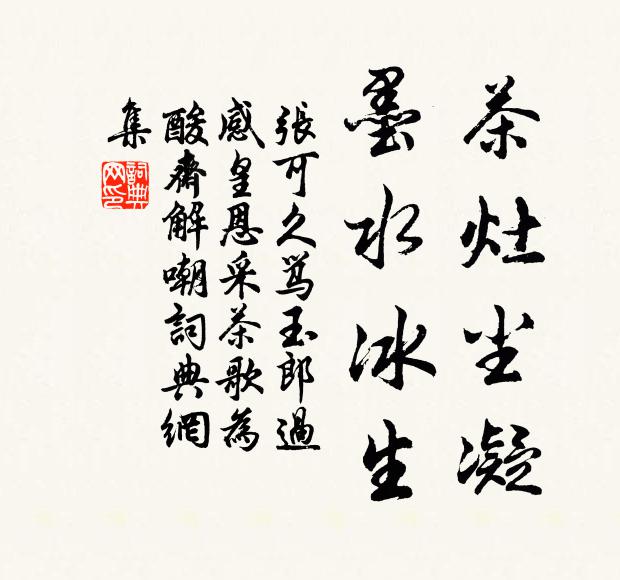 茶灶尘凝
墨水冰生
張可久骂玉郎過
感皇恩采茶歌為
酸齋解嘲詞典網
集
詞典網印